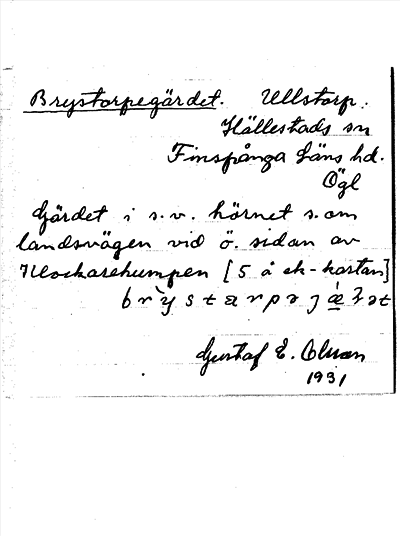 Brystorpegärdet. Ullstorp.
Hällestads sn
Finspånga läns hd.
Ögl
Gärdet i s.v. hörnet s. om
landsvägen vid ö. sidan av
Klockarehumpen [5 å ek-kartan]
Gustaf E.
1931